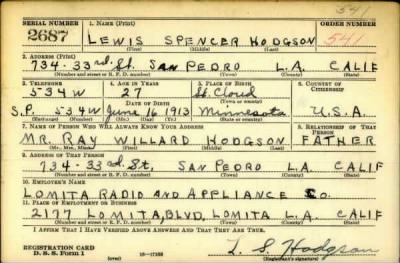 541
SERIAL NUMBER 1. NAME (Print) ORDER NUMBER
2687 LEWIS SPENCER HODGSON 541
(First) (Middle) (Last)
2. ADDRESS (Print)
734-33rd St. SAN PEDRO L.A. CALIF
(Number and street or R. F. D. number) (Town) (County) (State)
3. TELEPHONE 4. AGE IN YEARS 5. PLACE OF BIRTH 6. COUNTRY OF CITIZENSHIP
534W 27 St. Cloud
DATE OF BIRTH (Town or county)
S.P. 534W June 16 1913 Minnesota U.S.A.
(Exchange) (Number) (Mo.) (Day) (Yr.) (State or country)
7. NAME OF PERSON WHO WILL ALWAYS KNOW YOUR ADDRESS 8. RELATIONSHIP OF THAT PERSON
MR. RAY WILLARD HODGSON FATHER
(Mr., Mrs., Miss) (First) (Middle) (Last)
9. ADDRESS OF THAT PERSON
734-33rd St. SAN PEDRO L.A. CALIF
(Number and street or R. F. D. number) (Town) (County) (State)
10. EMPLOYER'S NAME
LOMITA RADIO AND APPLIANCE Co.
11. PLACE OF EMPLOYMENT OR BUSINESS
2177 LOMITA, BLVD, LOMITA L.A. CALIF
(Number and street or R. F. D. number) (Town) (County) (State)
I AFFIRM THAT I HAVE VERIFIED ABOVE ANSWERS AND THAT THEY ARE TRUE.
REGISTRATION CARD
D. S. S. Form 1 (over) L. S. Hodgson
(Registrant's signature)